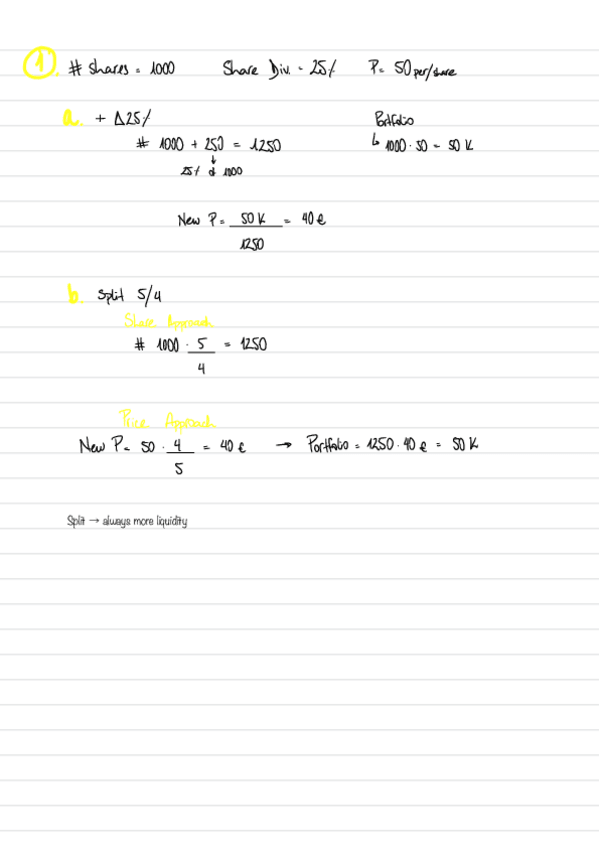 1. # Shares = 1000 Share Div. = 25% P = 50 per/share
a. + Δ25% Portfolio
# 1000 + 250 = 1250 ↳ 1000 · 50 = 50 K
↓
25% of 1000
New P = 50 K / 1250 = 40 €
b. Split 5/4
Share Approach
# 1000 · 5/4 = 1250
Price Approach
New P = 50 · 4/5 = 40 € → Portfolio = 1250 · 40 € = 50 K
Split → always more liquidity